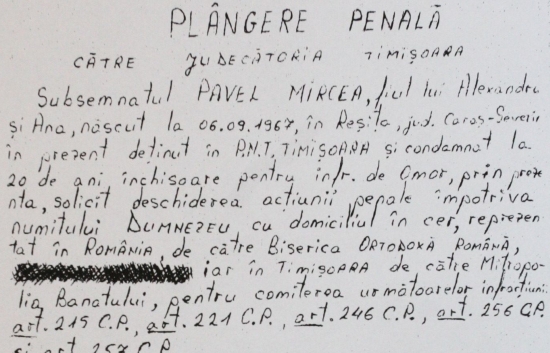 PLÂNGERE PENALĂ
CĂTRE JUDECĂTORIA TIMIȘOARA
Subsemnatul PAVEL MIRCEA, fiul lui Alexandru
și Ana, născut la 06.09.1967, în Reșița, jud. Caraș-Severin
în prezent deținut în P.N.T. TIMIȘOARA și condamnat la
20 de ani închisoare pentru infr. de Omor, prin preze
nta, solicit deschiderea acțiunii penale împotriva
numitului DUMNEZEU, cu domiciliul în cer, reprezen
tat în ROMÂNIA, de către Biserica ORTODOXĂ ROMÂNĂ,
iar în TIMIȘOARA de către Mitropo-
lia Banatului, pentru comiterea următoarelor infracțiuni:
art. 215 C.P., art. 221 C.P., art. 246 C.P., art. 256 C.P.
și art. 257 C.P.